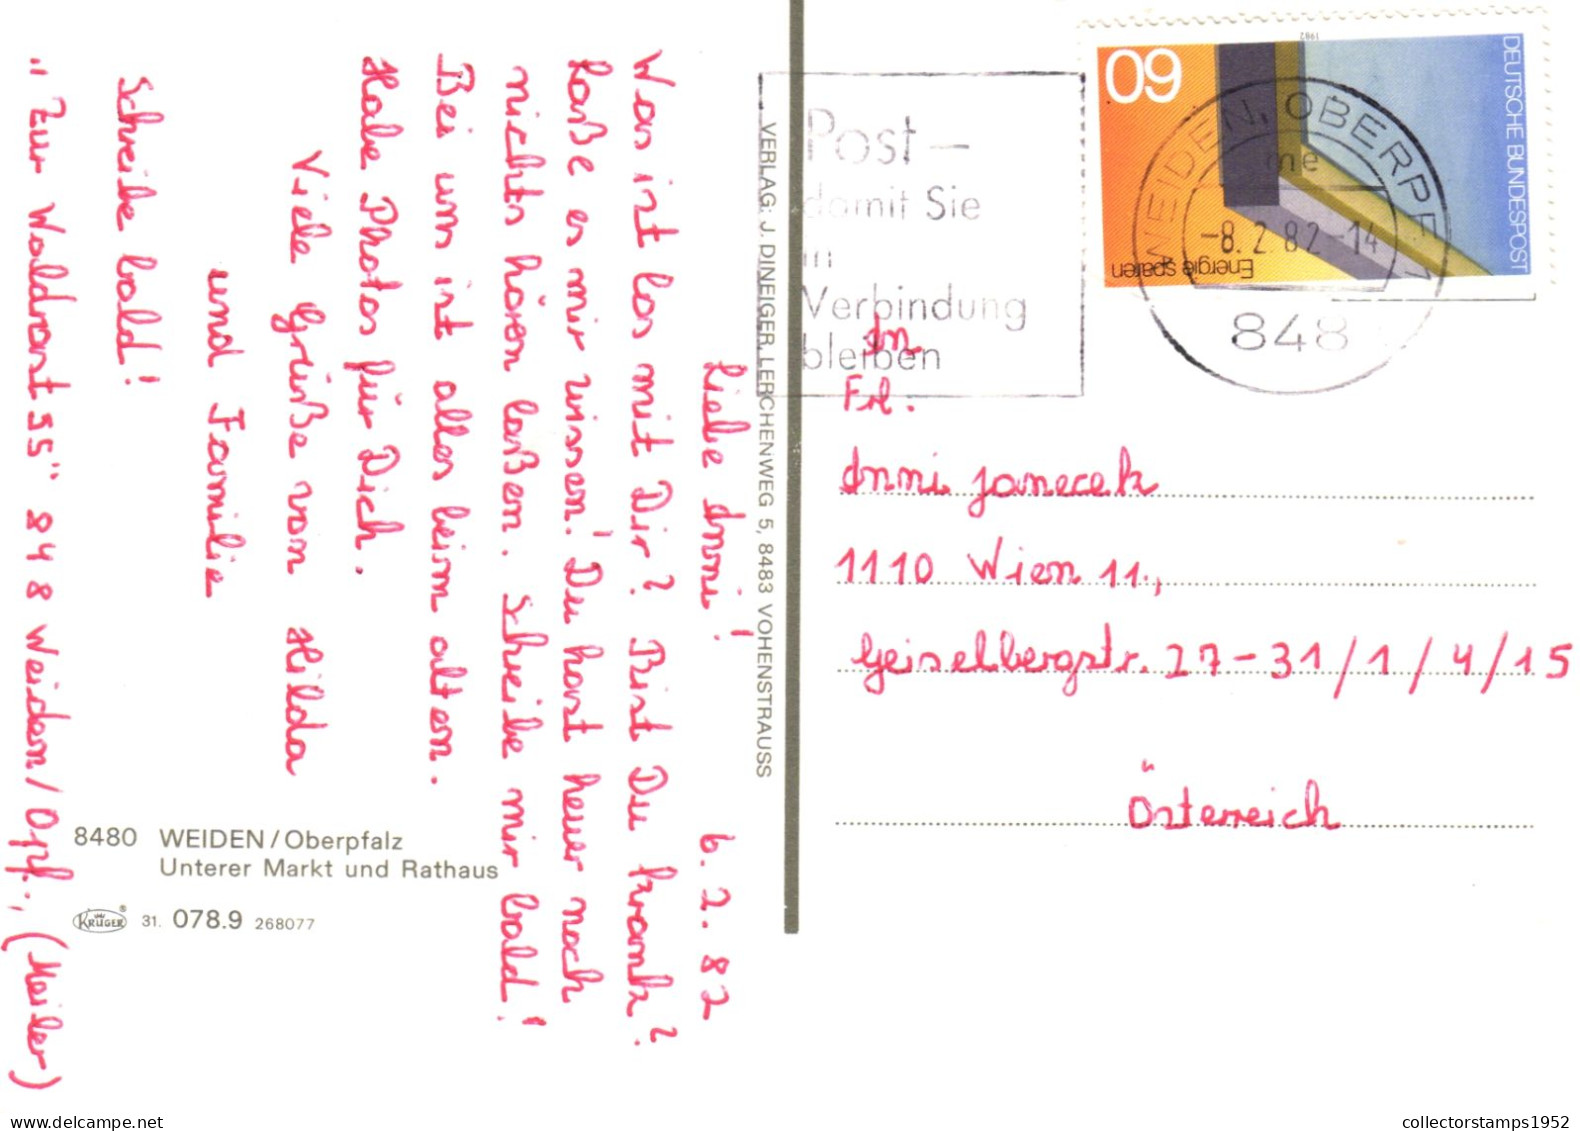 6.2.82
Liebe Anni!
Was ist los mit Dir? Bist Du krank?
Laße es mir wissen! Du hast heuer noch
nichts hören laßen. Schreibe mir bald!
Bei uns ist alles beim alten.
Habe Photos für Dich.
Viele Grüße von Hilda
und Familie
Schreibe bald!
"Zur Waldrast 55" 848 Weiden/Opf., (Meiler)
8480 WEIDEN/Oberpfalz
Unterer Markt und Rathaus
KRÜGER® 31. 078.9 268077
VERLAG: J. DINEIGER, LERCHENWEG 5, 8483 VOHENSTRAUSS
Post-
damit Sie
in
Verbindung
bleiben
60
1982
DEUTSCHE BUNDESPOST
Energie sparen
WEIDEN, OBERPF 1
me
-8.2.82-14
848
An
Frl.
Anni Janecek
1110 Wien 11.,
Geiselbergstr. 27-31/1/4/15
Österreich
collectorstamps1952